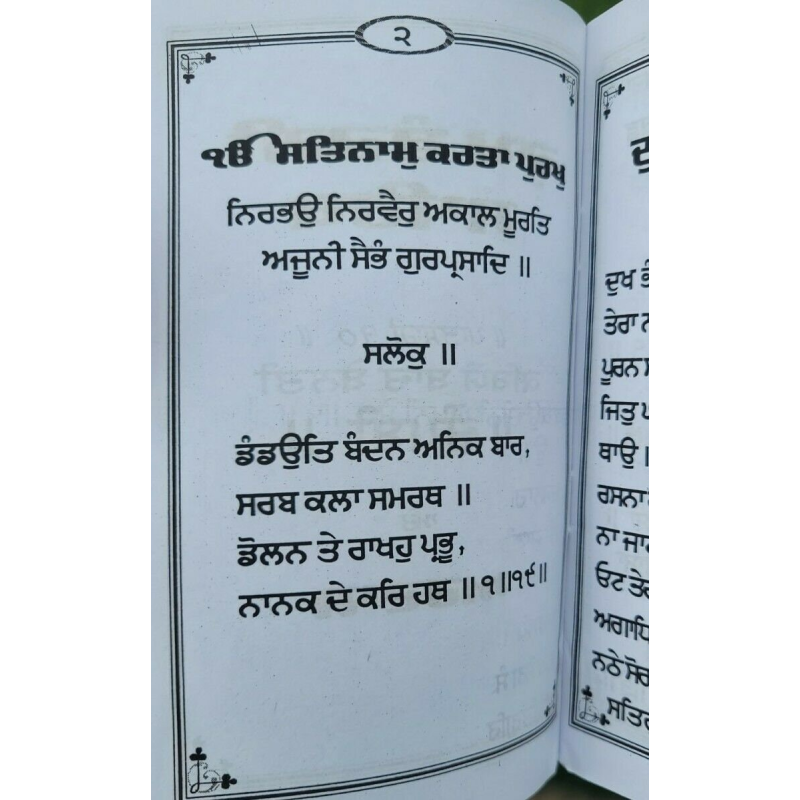 ੨
ੴ ਸਤਿਨਾਮੁ ਕਰਤਾ ਪੁਰਖੁ
ਨਿਰਭਉ ਨਿਰਵੈਰੁ ਅਕਾਲ ਮੂਰਤਿ
ਅਜੂਨੀ ਸੈਭੰ ਗੁਰਪ੍ਰਸਾਦਿ ॥
ਸਲੋਕੁ ॥
ਡੰਡਉਤਿ ਬੰਦਨ ਅਨਿਕ ਬਾਰ,
ਸਰਬ ਕਲਾ ਸਮਰਥ ॥
ਡੋਲਨ ਤੇ ਰਾਖਹੁ ਪ੍ਰਭੂ,
ਨਾਨਕ ਦੇ ਕਰਿ ਹਥ ॥੧॥੧੯॥
ਦੁਖ
ਤੇਰਾ
ਪੂਰਨ
ਜਿਤੁ
ਥਾਉ ॥
ਰਸਨਾ
ਨਾ
ਓਟ
ਅਗਾਧਿ
ਨਠੇ